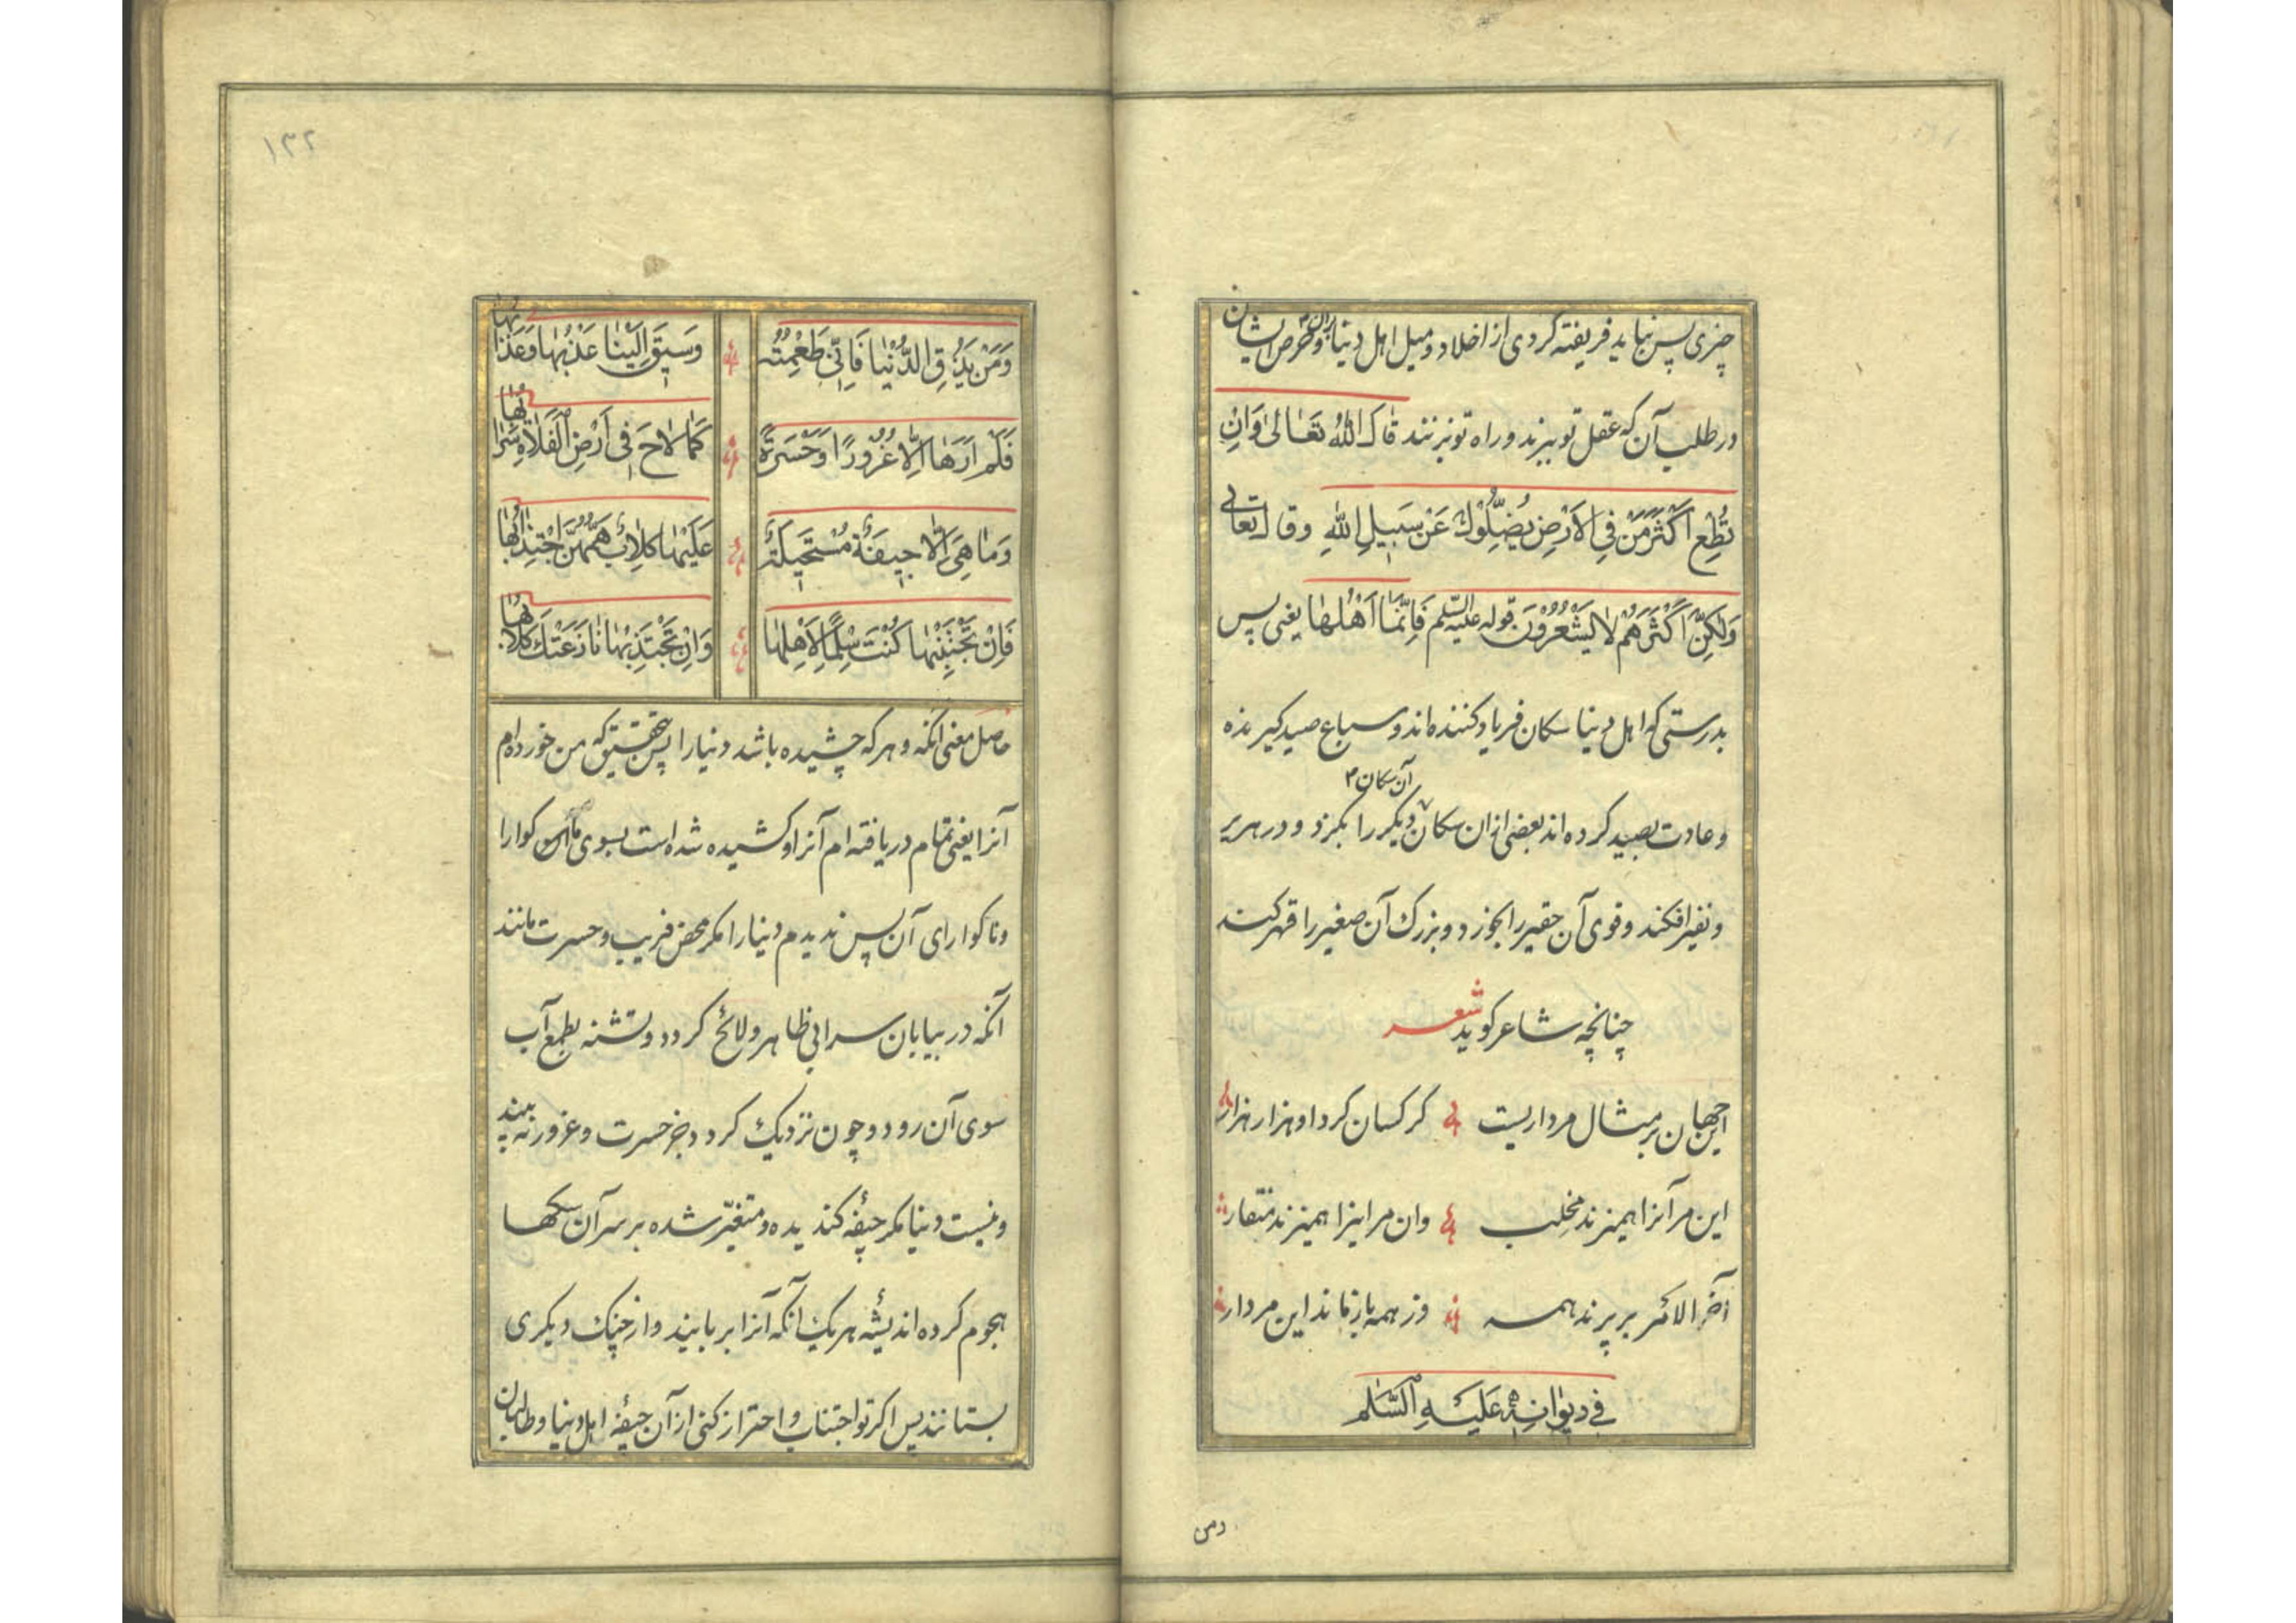 چیزی پس نباید فریفته کردی از اخلاد و میل اهل دنیا بران و حرص ایشان
در طلب آن که عقل تو ببرند و راه تو نبزنند قال الله تعالی وَاِنْ
تُطِعْ اَکْثَرَ مَنْ فِی الاَرْضِ یُضِلُّوْكَ عَنْ سَبِیلِ اللهِ وقال تعالی
وَلکِنَّ اَکْثَرَهُمْ لا یَشْعُرُوْنَ قوله علیه السّلم فَاِنَّمَا اَهْلُهَا یعنی پس
بدرستی که اهل دنیا سکان فریاد کننده اند و سباع صید کیرنده
آن سکان ۲
و عادت بصید کرده اند بعضی ازان سکان دیکر را بکزد و در هریر
و نفیر افکند و قوی آن حقیر را بخورد و بزرك آن صغیر را قهر کند
چنانچه شاعر کوید شعر
این جهان بر مثال مرداریست کرکسان کرد او هزار هزار
این مر آنرا همیزند مخلب وان مر اینرا همیزند منقار
آخر الامر بر پرند همه وز همه باز ماند این مردار
فی دیوانه علیه السّلم
ومن
۱۳۲
وَمَنْ یَذُقِ الدُّنْیَا فَاِنّی طَعِمْتُهَا وَسِیقَ اِلَیْنَا عَذْبُهَا وَعَذَابُهَا
فَلَمْ اَرَهَا اِلّا غُرُورًا وَحَسْرَةً کَمَا لاحَ فِی اَرْضِ الْفَلاةِ سَرَابُهَا
وَمَا هِیَ اِلّا جِیفَةٌ مُسْتَحِیلَةٌ عَلَیْهَا کِلابٌ هَمُّهُنَّ اجْتِذَابُهَا
فَاِنْ تَجْتَنِبْهَا کُنْتَ سِلْمًا لِاَهْلِهَا وَاِنْ تَجْتَذِبْهَا نَازَعَتْكَ کِلابُهَا
حاصل معنی آنکه و هر که چشیده باشد دنیا را پس بتحقیق که من خورده ام
آنرا یعنی تمام دریافته ام آنرا و کشیده شده است بسوی ما کوارا
و ناکوارای آن پس ندیدم دنیا را مکر محض فریب و حسرت مانند
آنکه در بیابان سرابی ظاهر و لائح کردد و تشنه بطمع آب
سوی آن رود و چون نزدیك کردد جز حسرت و غرور نه بیند
و نیست دنیا مکر جیفۀ کندیده و متغیّر شده بر سر آن سکها
هجوم کرده اندیشۀ هر یك آنکه آنرا بربایند و از چنك دیکری
بستانند پس اکر تو اجتناب و احتراز کنی از آن جیفه اهل دنیا و طالبان